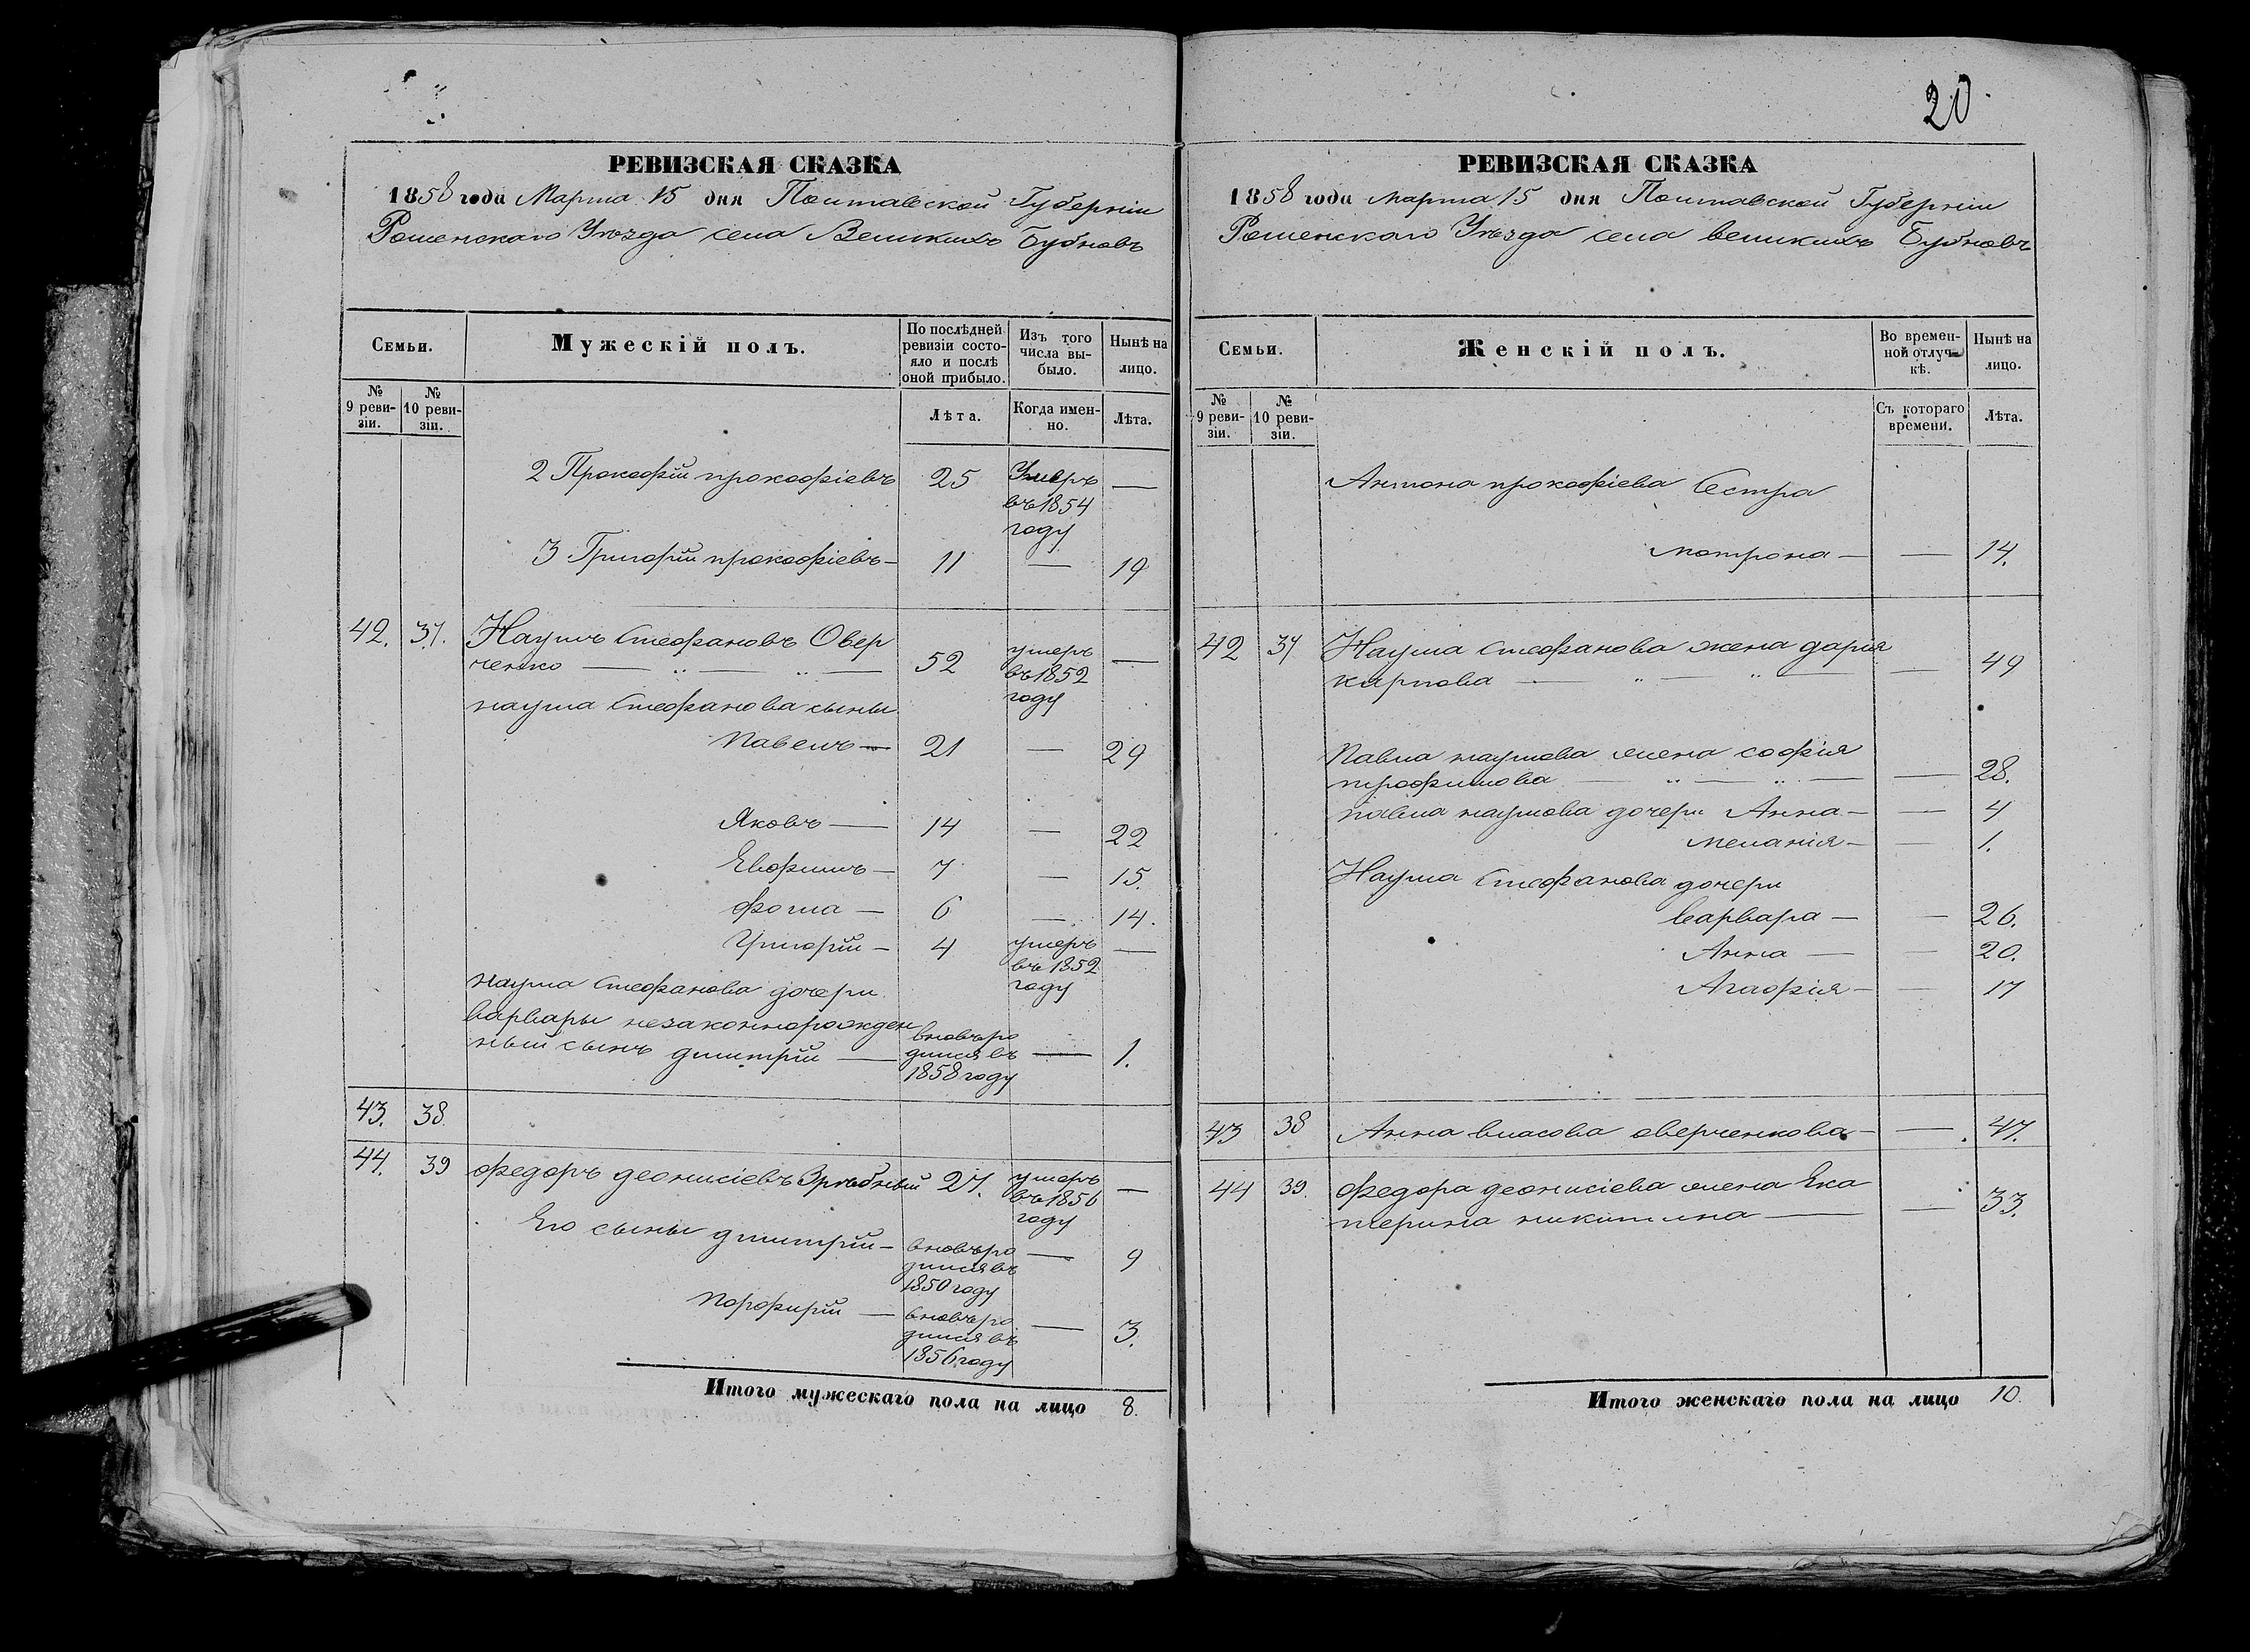 РЕВИЗСКАЯ СКАЗКА
1858 года Марта 15 дня Полтавской Губерніи
Роменскаго Уѣзда села Великихъ Бубновъ
Семьи.
Мужескій полъ.
По послѣдней ревизіи состояло и послѣ оной прибыло.
Изъ того числа выбыло.
Нынѣ на лицо.
№ 9 ревизіи.
№ 10 ревизіи.
Лѣта.
Когда именно.
Лѣта.
2 Прокофій прокофіевъ 25 Умеръ въ 1854 году —
3 Григорій прокофіевъ — 11 — 19
42. 37. Наумъ Стефановъ Овер
ченко — „ — „ — 52 умеръ въ 1852 году —
наума Стефанова сыны
Павелъ — 21 — 29
Яковъ — 14 — 22
Евфимъ — 7 — 15.
фома — 6 — 14.
Григорій — 4 умеръ въ 1852 году —
наума Стефанова дочери
варвары незаконнорожден
ный сынъ дмитрій — вновь родился въ 1858 году — 1.
43. 38.
44. 39 федоръ деонисіевъ Зрѣбный 27. умеръ въ 1856 году —
Его сыны дмитрій — вновь родился въ 1850 году — 9
Порфирій — вновь родился въ 1856 году — 3.
Итого мужескаго пола на лицо 8.
20
РЕВИЗСКАЯ СКАЗКА
1858 года марта 15 дня Полтавской Губерніи
Роменскаго Уѣзда села великихъ Бубновъ
Семьи.
Женскій полъ.
Во временной отлучкѣ.
Нынѣ на лицо.
№ 9 ревизіи.
№ 10 ревизіи.
Съ котораго времени.
Лѣта.
Антона прокофіева Сестра
мотрона — — 14.
42 37 Наума Стефанова жена дарія
карпова — „ — „ — — 49
Павла наумова жена софія
трофимова — „ — „ — — 28.
павла наумова дочери Анна — — 4
меланія — — 1.
Наума Стефанова дочери
варвара — — 26.
Анна — — 20.
Агафія — — 17
43 38 Анна власова оверченкова — — 47.
44 39. федора деонисіева жена Ека
терина никитина — — 33.
Итого женскаго пола на лицо 10.